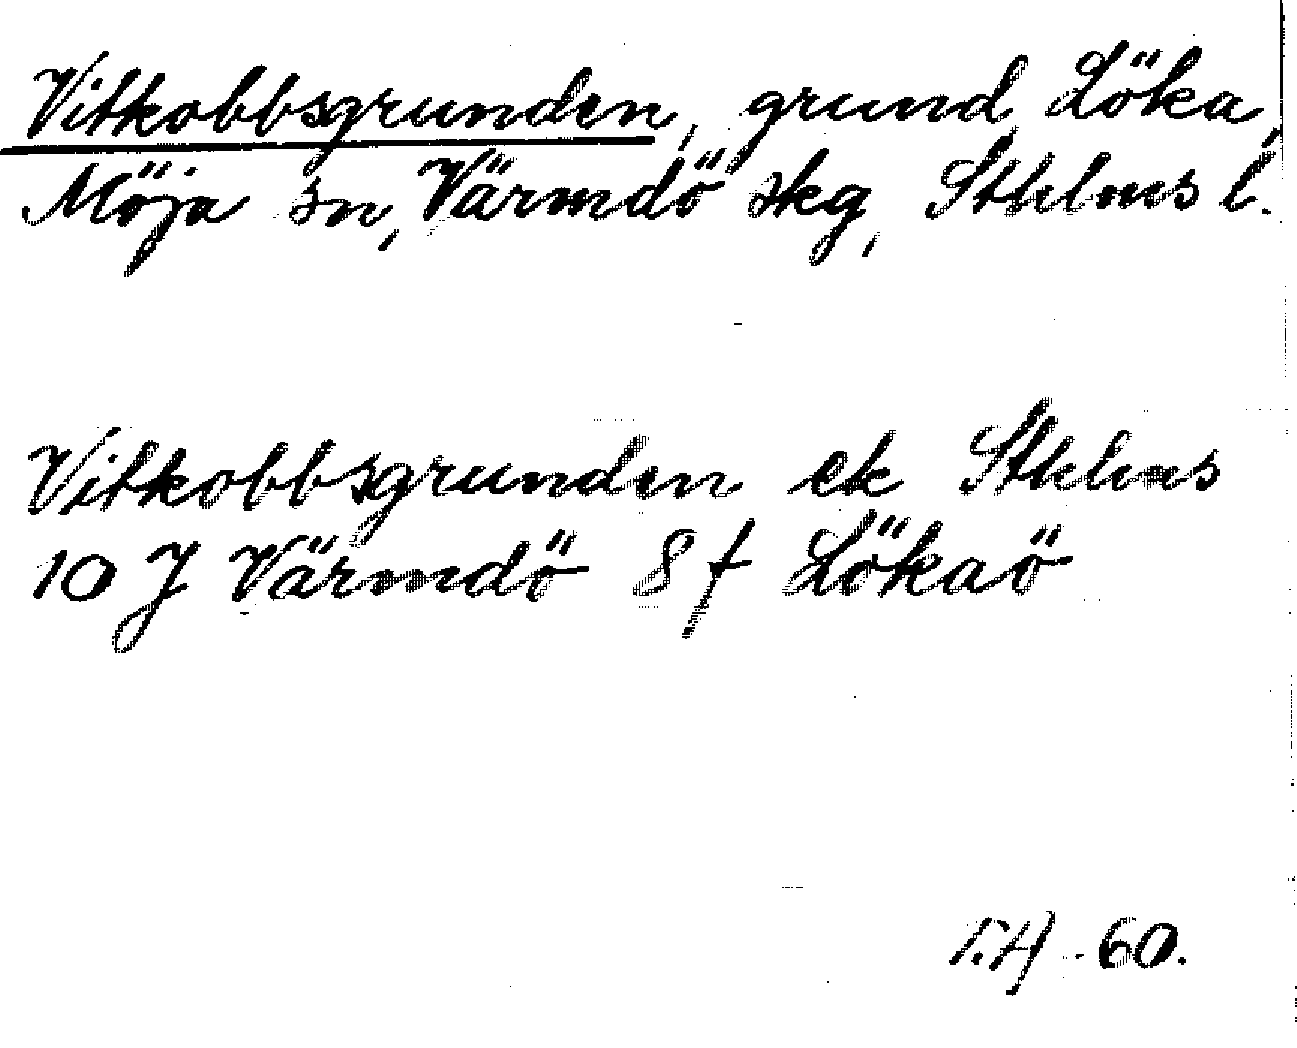 Vitkobbsgrunden, grund, Löka,
Möja sn, Värmdö skg, Sthlms l.
Vitkobbsgrunden ek Sthlms
10 J Värmdö 8 f Lökaö
T.H -60.